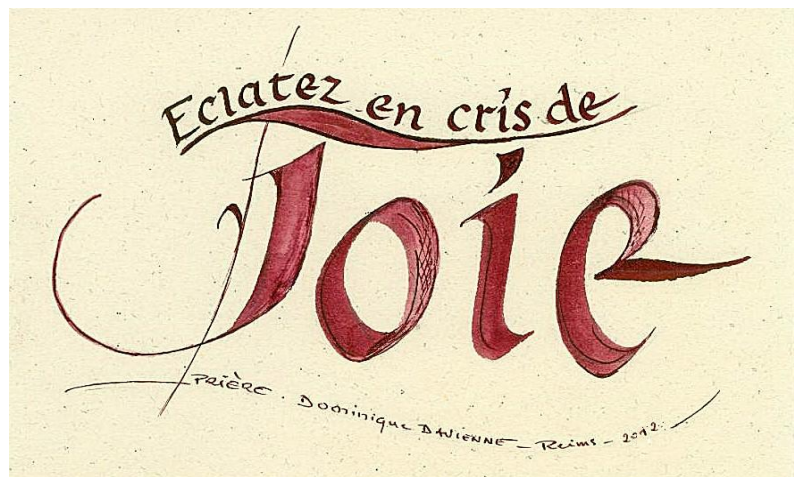 Eclatez en cris de
Joie
PRIÈRE. Dominique DAVIENNE - Reims - 2012